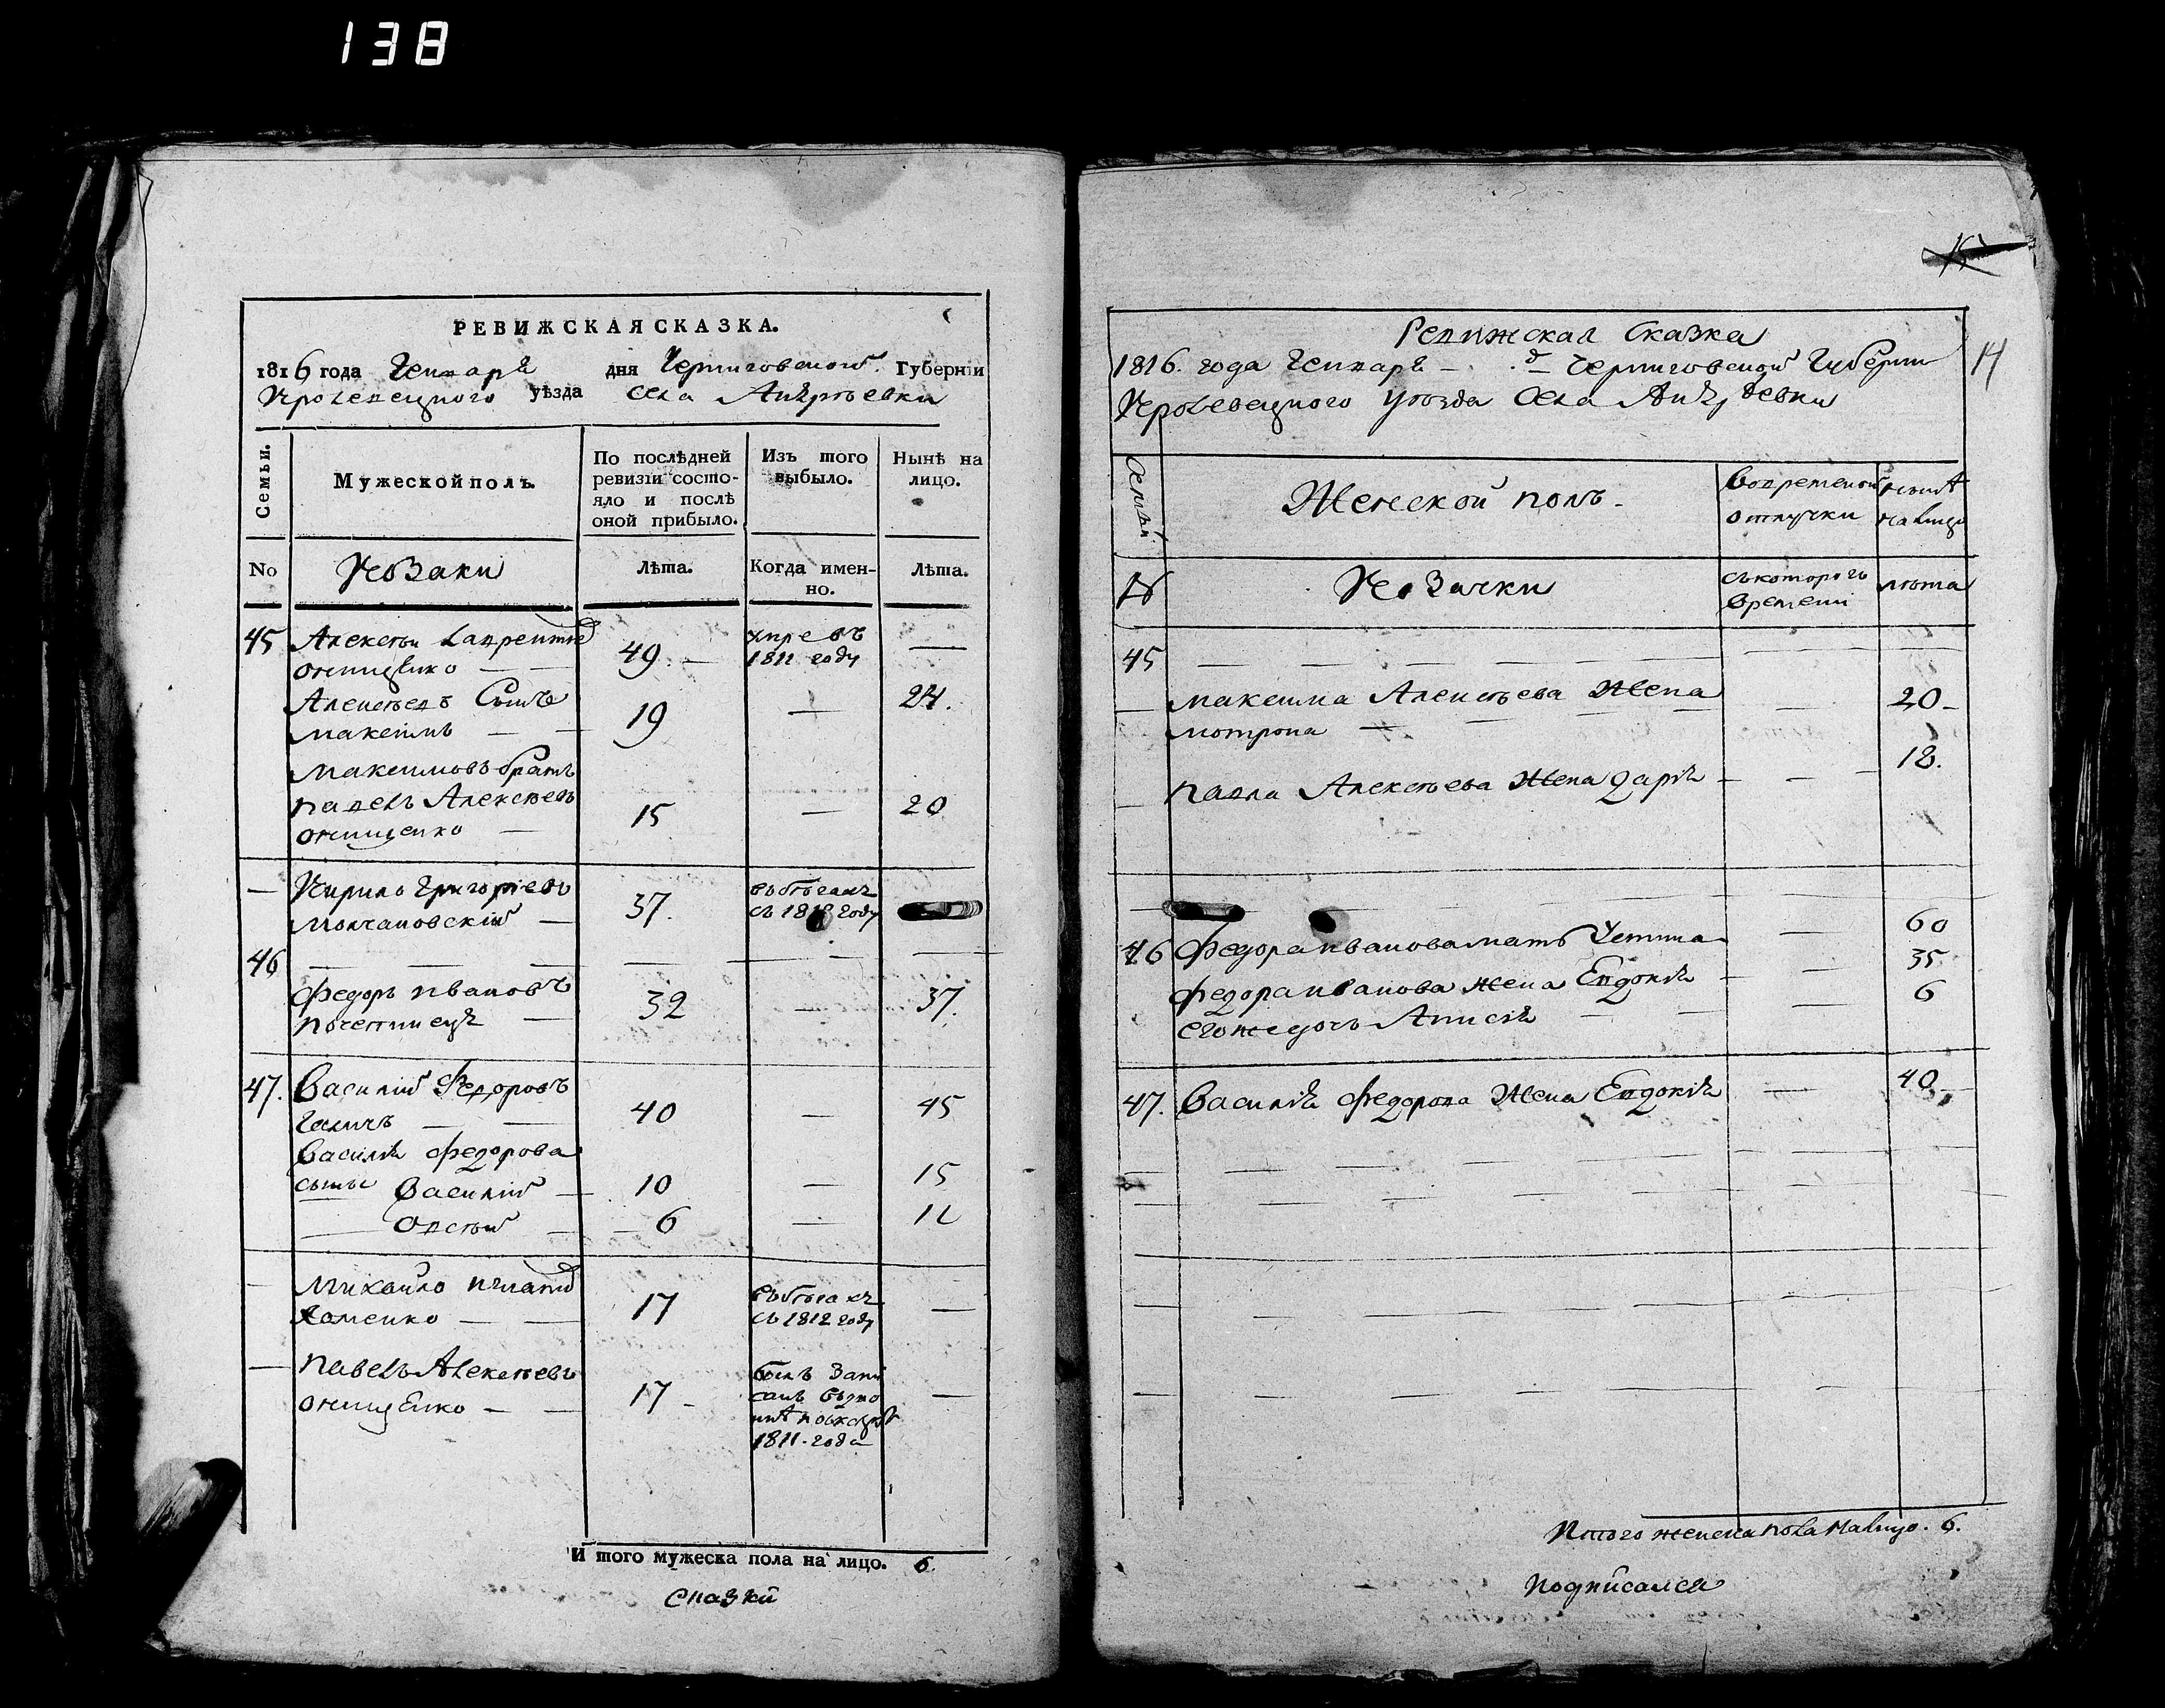 138
РЕВИЖСКАЯ СКАЗКА.
1816 года Генваря дня Черниговской Губерніи
Кролевецкого уѣзда села Андреевки
Семьи.
Мужеской полъ.
По послѣдней ревизіи состояло и послѣ оной прибыло.
Изъ того выбыло.
Нынѣ на лицо.
No
Козаки
Лѣта.
Когда именно.
Лѣта.
45 Алексѣй Лаврентіев 49. умре въ —
Онищенко — — 1811 году
Алексѣевъ Сынъ 19 — 24.
Максимъ — —
Максимовъ братъ
Павелъ Алексѣевъ 15 — 20
Онищенко —
— Кирило Григоріевъ 37. въ бѣгахъ
Молчановскій — съ 1812 году
46 — — —
Федоръ Ивановъ 32 — 37.
Почепинецъ —
47. Василий Федоровъ 40 — 45
Галичъ — —
Василія Федорова
сыны Василій — 10 — 15
— Овсѣй — 6 — 11
— Михайло Игнатіев 17 въ бѣгахъ —
Хоменко — — съ 1812 году
— Павелъ Алексѣевъ 17 — былъ запи —
Онищенко — — санъ
1811. года
И того мужеска пола на лицо. 6.
Сказки
15
14
Ревижская Сказка
1816. года Генваря — д — Черниговской Губерніи
Кролевецкого уѣзда Села Андреевки
Семьи
Женской полъ —
Вовременной отлучки
нынѣ на лицо
№
Козачки
съ которого времени
лѣта
45 — — — — — —
— Максима Алексѣева Жена — 20 —
Мотрона —
— Павла Алексѣева Жена Дарія — — — 18.
46 Федора Иванова мать — 60
Федора Иванова жена Евдокія — — 35
его же дочь Анисія — — 6
47. Василія Федорова Жена Евдокія — 40 —
Итого женска пола на лицо. 6.
Подписался